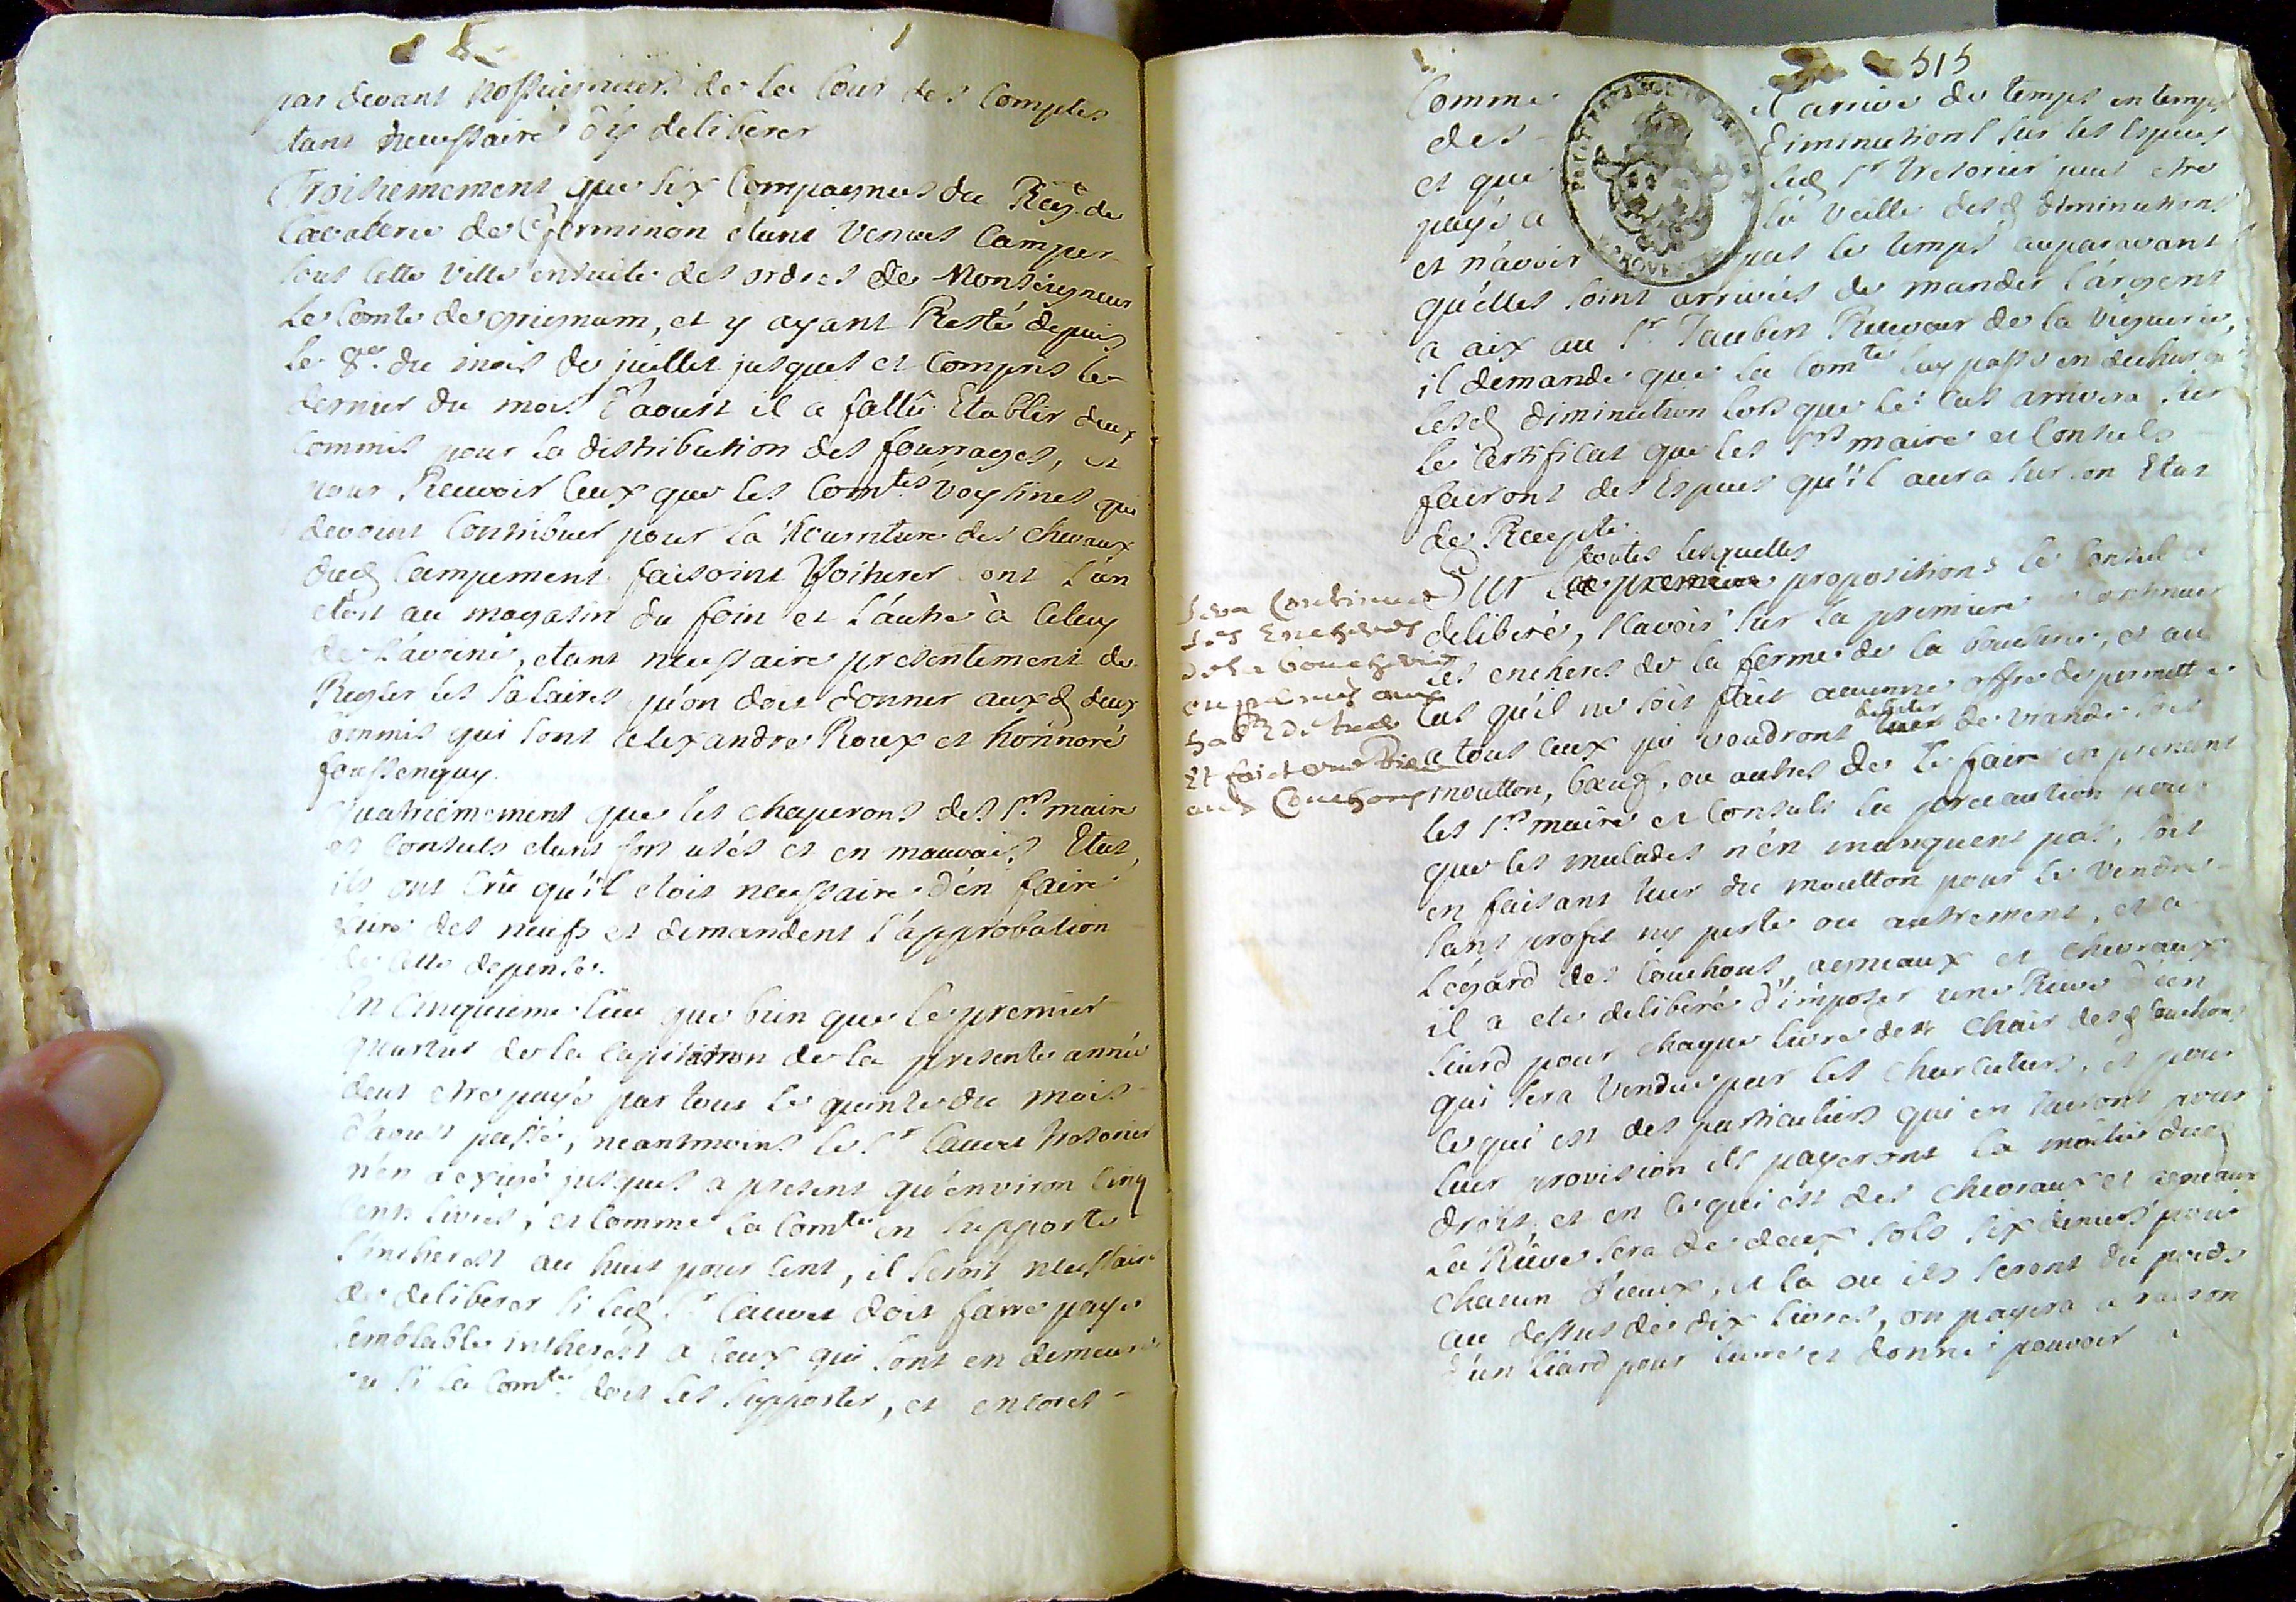 par devant nosseigneurs de la Cour des Comptes
etant necessaire d'y deliberer
Troisiemement que six Compagnies du Reg.t de
Cavalerie de ferminon etant venues Camper
sous cette ville ensuite des ordres de Monseigneur
Le Comte de grignam, et y ayant Resté depuis
le 8e. du mois de juillet jusques et Compris le
dernier du mois d'aoust il a fallû Etablir deux
Commis pour la distribution des fourrages, et
pour Recevoir ceux que les Com.tés voysines qui
devoint Contribuer pour la Nourriture des chevaux
dud Campement faisoint Voiturer dont l'un
etoit au magasin du foin et l'autre à celuy
de l'avoine, etant necessaire presentement de
Regler les salaires qu'on doit donner auxd deux
Commis qui sont alexandre Roux et honnoré
foussenquy.
Quatriémement que les chaperons des s.rs maire
et Consuls etant fort usés et en mauvais Etat,
ils ont Crû qu'il etoit necessaire d'en faire
faire des neufs et demandent l'approbation
de cette depense.
En Cinquieme lieu que bien que le premier
quartier de la Capitation de la presente année
deut etre payé par tout le quinze du mois
d'aoust passé, neantmoins le s.r Cauvet Tresorier
n'en a exigé jusques a present qu'environ cinq
cents livres, et comme la Com.té en supporte
l'intherest au huit pour cent, il seroit necessaire
de deliberer si led s.r Cauvet doit faire payer
semblable intherest a ceux qui sont en demeure
ou si la Com.té doit les supporter, et encores
515
Comme il arrive de temps en temps
des diminutions sur les Especes
et que led s.r Tresorier peut etre
payé a la veille desd diminutions
et n'avoir pas le temps auparavant
qu'elles soint arrivées de mander l'argent
a aix au s.r Jaubert Receveur de la viguerie,
il demande que la Com.té luy passe en decharge
lesd diminution lors que le cas arrivera sur
le certificat que les s.rs maire et Consuls
fairont des Especes qu'il aura sur son Etat
de Recepte.
toutes lesquelles
Sur les premiere propositions le Conseil a
deliberé, sçavoir sur la premiere de continuer
les encheres de la ferme de la boucherie, et au
cas qu'il ne soit fait aucune offre de permettre
debiter
a tous ceux qui voudront tuer de viande soit
moutton, bœuf, ou autres de le faire en prenant
les s.rs maire et Consuls la precaution pour
que les malades n'en manquent pas, soit
en faisant tuer du moutton pour le vendre
sans profit ny perte ou autrement, et a
l'égard des Couchons, agneaux et chevraux
il a ete deliberé d'imposer une Rieve d'un
liard pour chaque livre de chair desd Couchons
qui sera vendue par les charcutiers, et pour
ce qui est des particuliers qui en tueront pour
leur provision ils payeront la moitié dud
droit, et en ce qui ést des chevraux et agneaux
La Rieve sera de deux sols six deniers pour
chacun d'eux, et la ou ils seront du poids
au dessus de dix livres, on payera a raison
d'un liard pour livre et donné pouvoir
sera Continué
les Encheres
de la boucherie
ou permis aux
hab.ts de tuer
Et fait une Rieve
aux Couchons